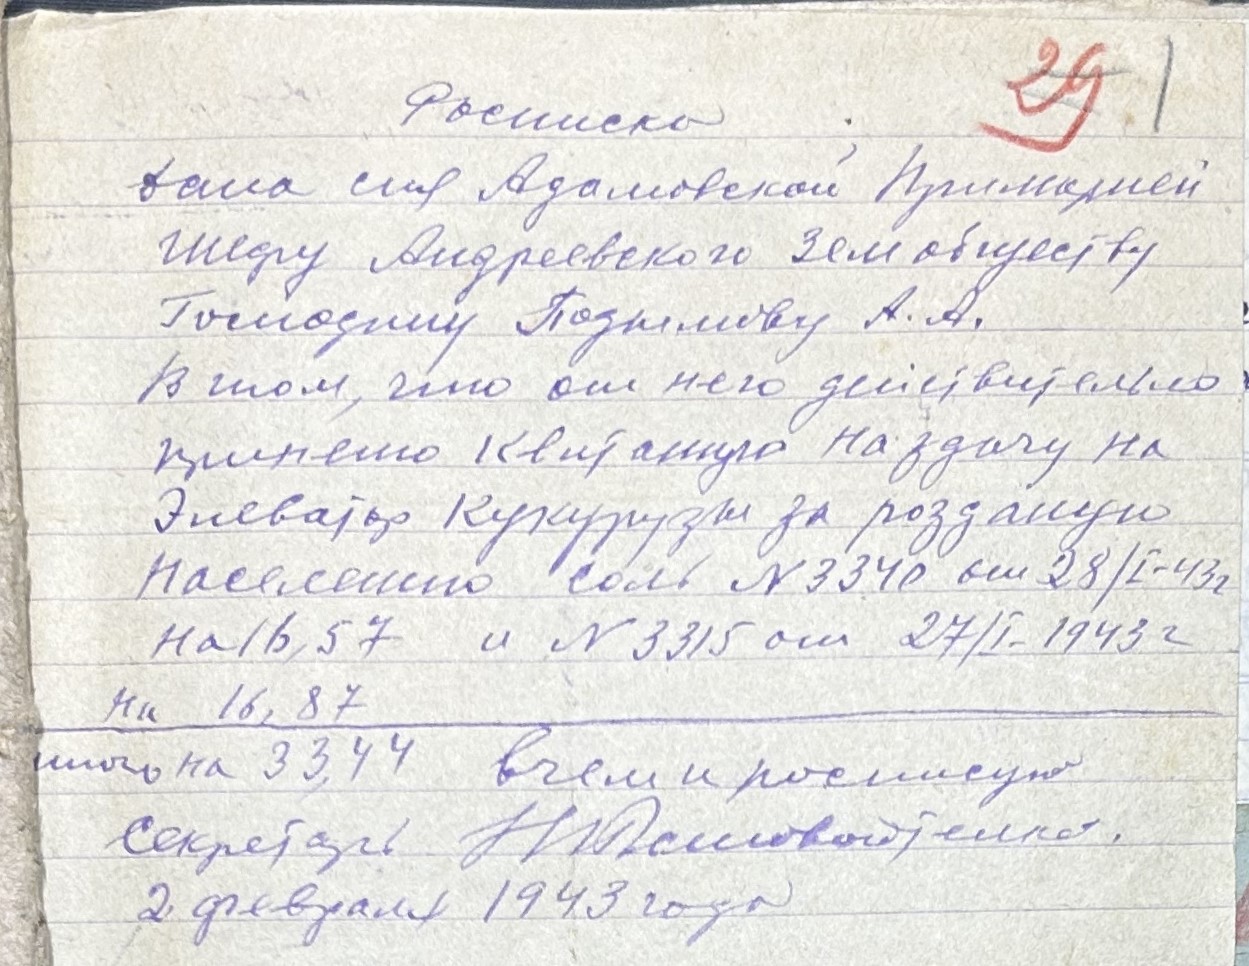 29 1
Росписка
дана сия Адамовской Примарией
Шефу Андреевского Зем обществу
Господину Подымову А. А.
В том, что от него действительно
принето Квитанцую на здачу на
Элеватор Кукурузы за розданую
Населению соль N 3340 от 28/I-43г
на 16,57 и N 3315 от 27/I-1943 г
на 16,87
итого на 33,44 вчем и росписуюс
Секретарь
2 февраля 1943 года